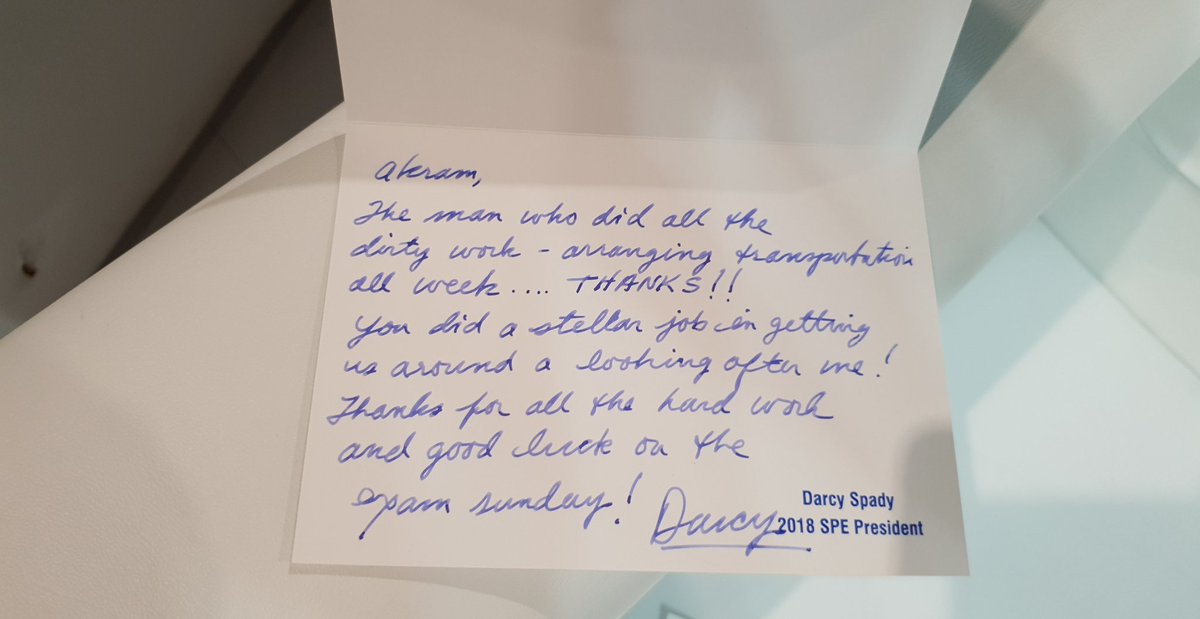 Akram,
The man who did all the
dirty work - arranging transportation
all week.... THANKS!!
You did a stellar job in getting
us around a looking after me!
Thanks for all the hard work
and good luck on the
exam sunday!
Darcy
Darcy Spady
2018 SPE President